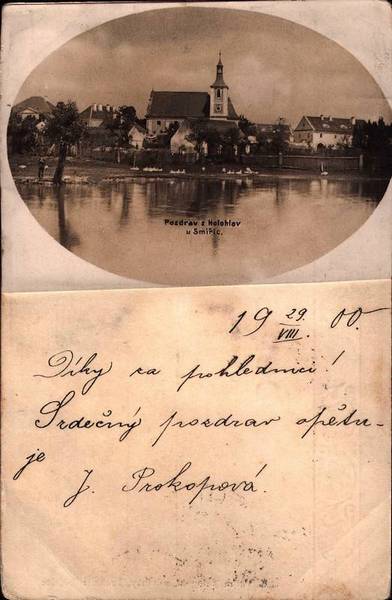 Pozdrav z Holohlav
u Smiřic.
19 29./VIII. 00.
Díky za pohlednici!
Srdečný pozdrav opětu-
je
J. Prokopová.